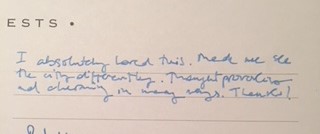 ESTS •
I absolutely loved this. Made me see
the city differently. Thought provoking
and charming in many ways. Thanks!